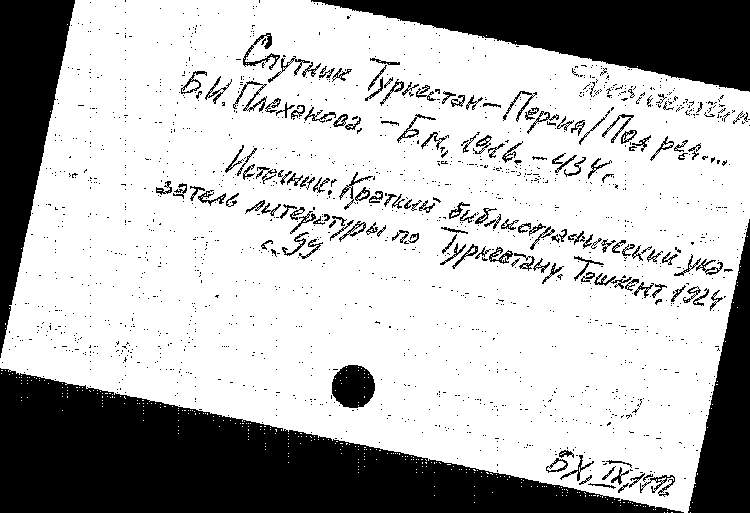 Desideratum
Спутник Туркестан – Персия / Под ред....
Б.И. Плеханова. – Б.м., 1916. – 434 с.
Источник: Краткий библиографический ука-
затель литературы по Туркестану. Ташкент, 1924
с. 99
БХ, IX, 1992